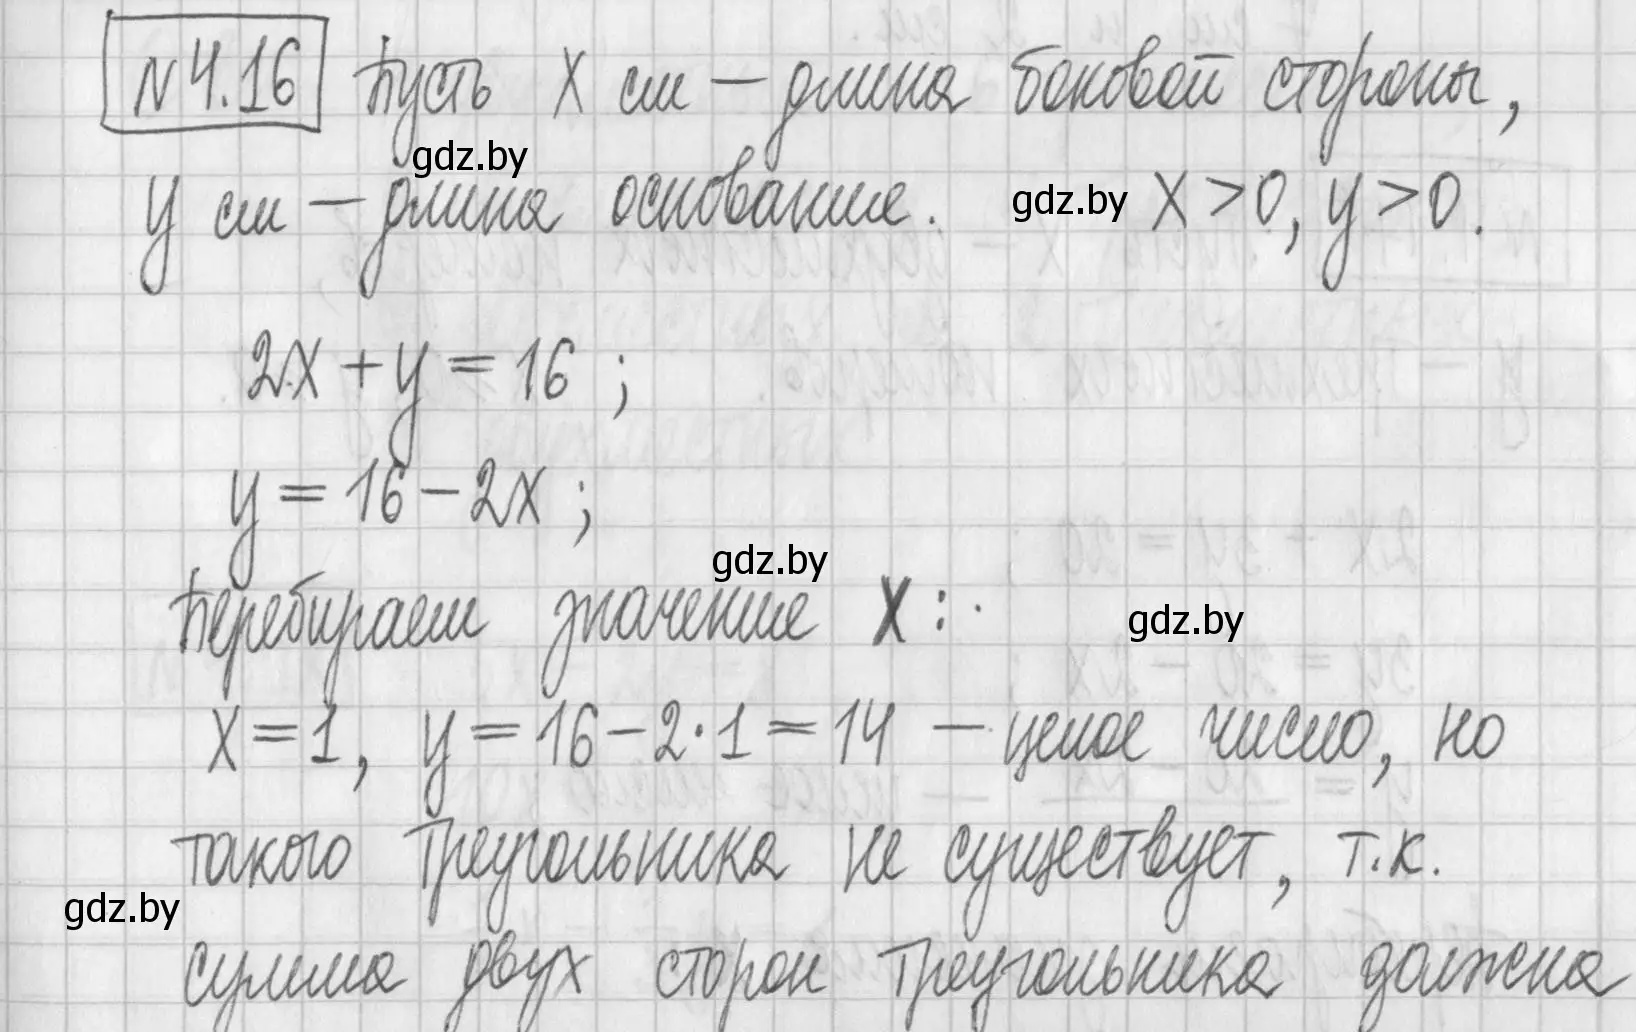 №4.16 Пусть х см — длина боковой стороны,
gdz.by
у см — длина основание. gdz.by х > 0, у > 0.
2х + у = 16 ;
у = 16 - 2х ;
gdz.by
Перебираем значение х :
gdz.by
х = 1, у = 16 - 2·1 = 14 — целое число, но
такого треугольника не существует, т.к.
gdz.by
сумма двух сторон треугольника должна